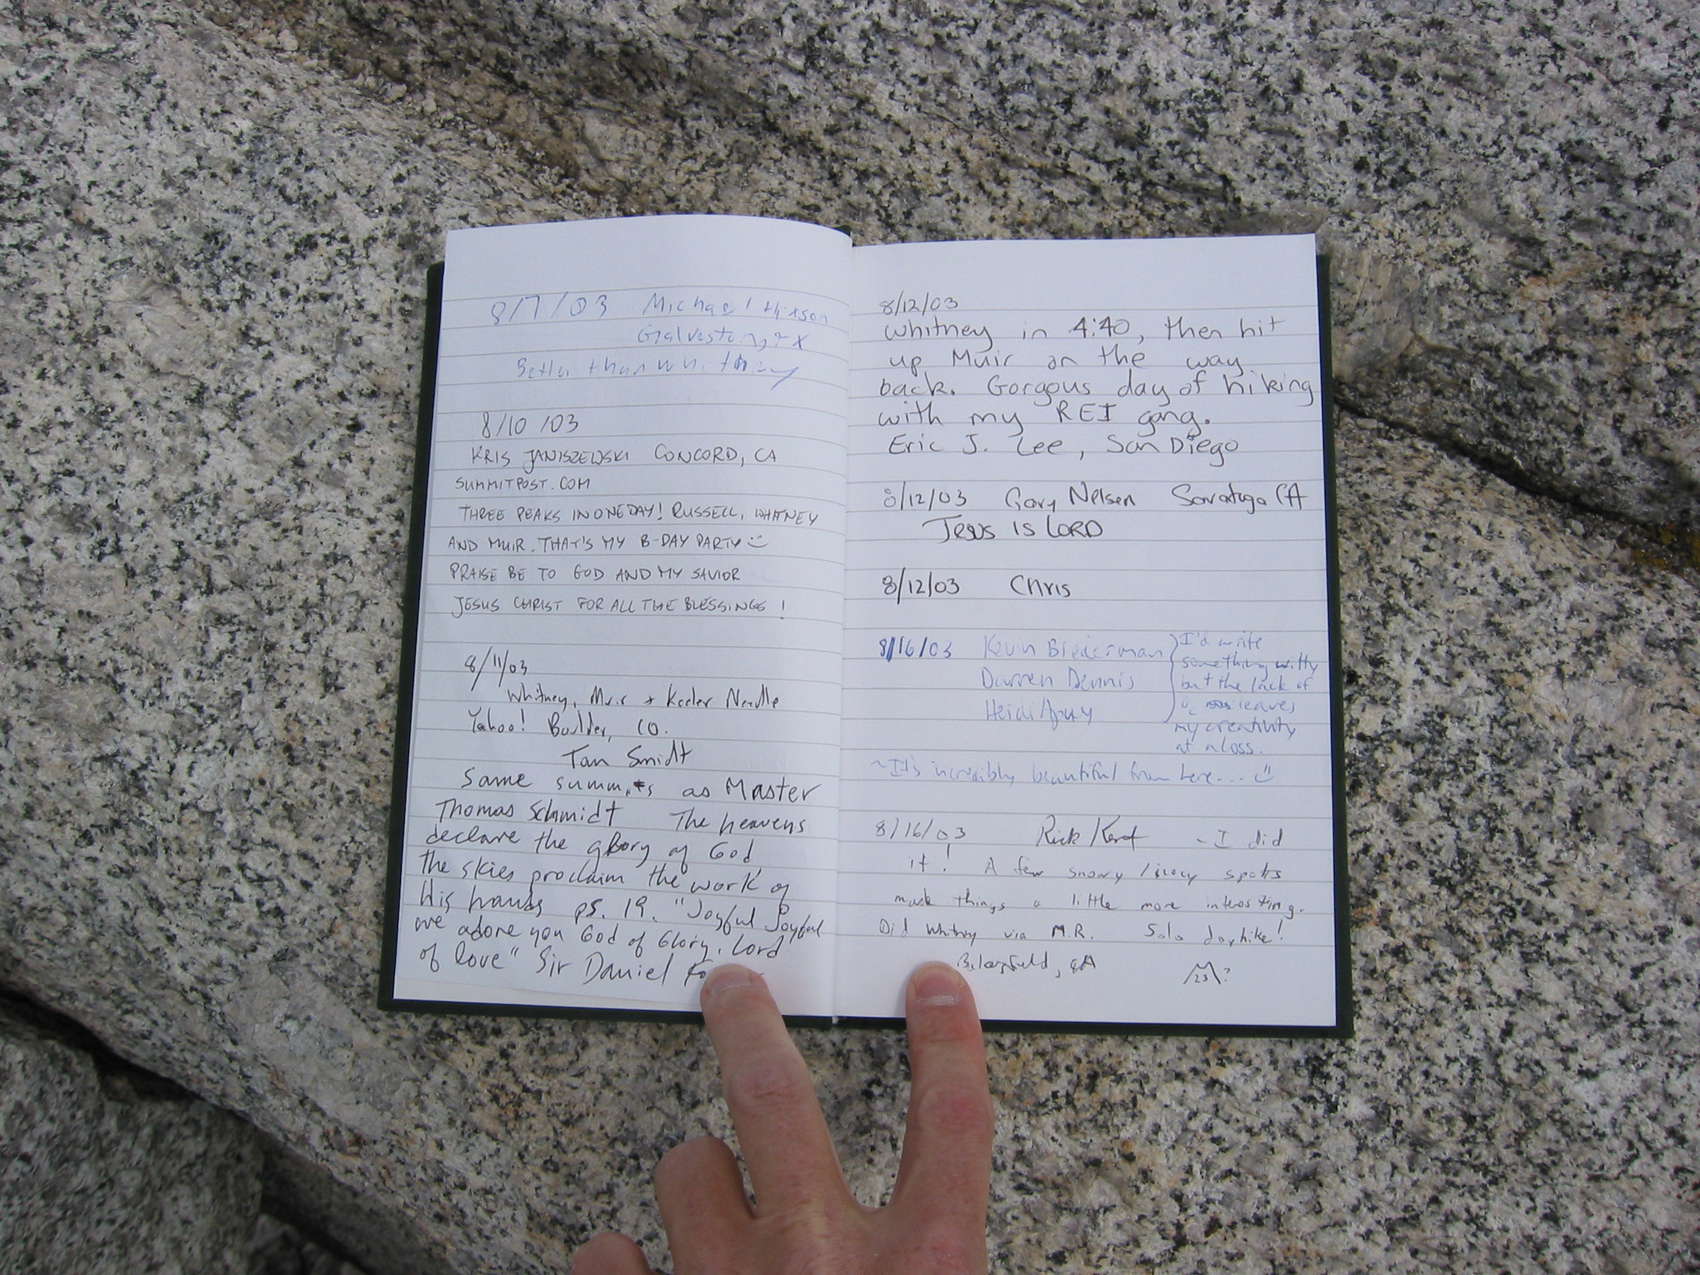 8/7/03 Michael Hixson
Galveston, TX
Better than Whitney
8/10/03
KRIS JANISZEWSKI CONCORD, CA
SUMMITPOST.COM
THREE PEAKS IN ONE DAY! RUSSELL, WHITNEY
AND MUIR. THAT'S MY B-DAY PARTY
PRAISE BE TO GOD AND MY SAVIOR
JESUS CHRIST FOR ALL THE BLESSINGS!
8/11/03
Whitney, Muir + Keeler Needle
Yahoo! Boulder, CO.
Tan Smidt
Same summits as Master
Thomas Schmidt The heavens
declare the glory of God
the skies proclaim the work of
His hands ps. 19. "Joyful Joyful
we adore you God of Glory, Lord
of love" Sir Daniel
8/12/03
Whitney in 4:40, then hit
up Muir on the way
back. Gorgous day of hiking
with my REI gang.
Eric J. Lee, San Diego
8/12/03 Gary Nelsen Saratoga CA
JESUS IS LORD
8/12/03 Chris
8/16/03 Kevin Biederman
Darren Dennis
Heidi
I'd write
something witty
but the lack of
O2 leaves
my creativity
at a loss.
~It's incredibly beautiful from here...
8/16/03 Rick Kent - I did
it! A few snowy/icy spots
made things a little more interesting.
Did Whitney via M.R. Solo dayhike!
Bakersfield, CA 23?